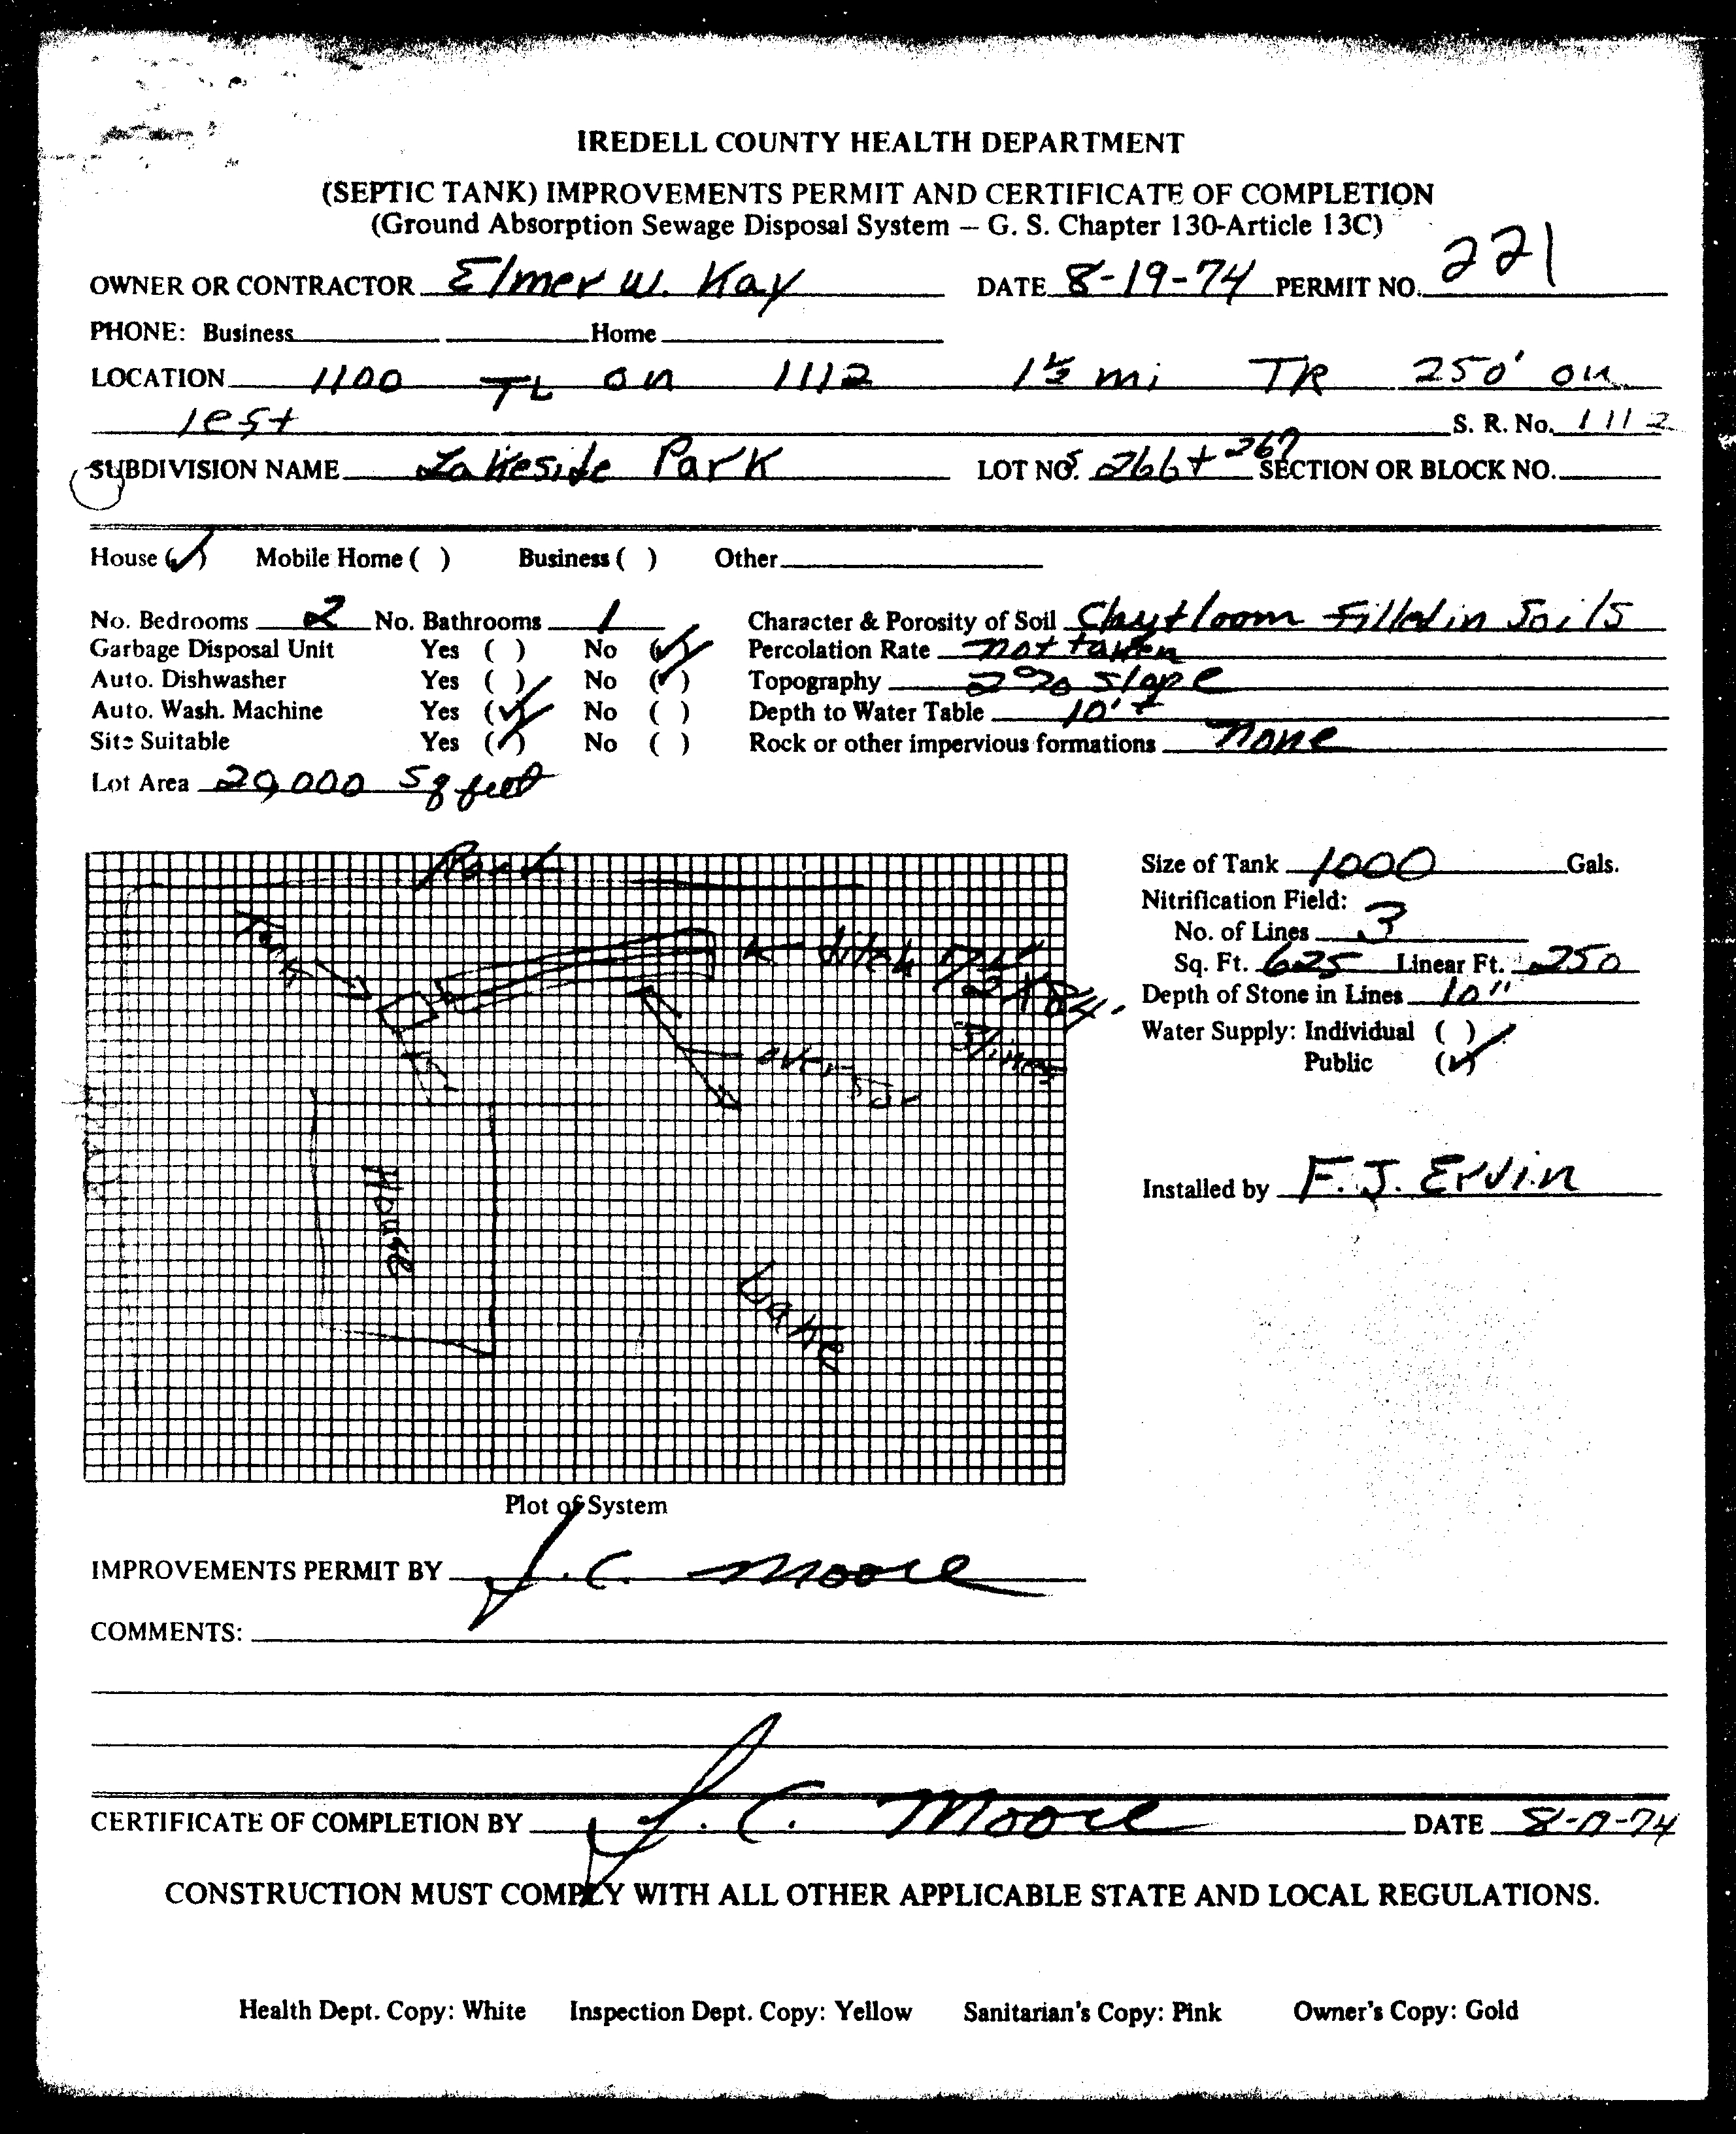 IREDELL COUNTY HEALTH DEPARTMENT
(SEPTIC TANK) IMPROVEMENTS PERMIT AND CERTIFICATE OF COMPLETION
(Ground Absorption Sewage Disposal System — G. S. Chapter 130-Article 13C)
OWNER OR CONTRACTOR Elmer W. Kay DATE 8-19-74 PERMIT NO. 221
PHONE: Business Home
LOCATION 1100 TL on 1112 1½ mi TR 250' on
lest S. R. No. 1112
SUBDIVISION NAME Lakeside Park LOT NO.s 266 + 267 SECTION OR BLOCK NO.
House (✓) Mobile Home ( ) Business ( ) Other
No. Bedrooms 2 No. Bathrooms 1 Character & Porosity of Soil Clay + loom filled in Soils
Garbage Disposal Unit Yes ( ) No (✓) Percolation Rate not taken
Auto. Dishwasher Yes ( ) No (✓) Topography 2% slope
Auto. Wash. Machine Yes (✓) No ( ) Depth to Water Table 10' +
Site Suitable Yes (✓) No ( ) Rock or other impervious formations none
Lot Area 20,000 Sq feet
Size of Tank 1000 Gals.
Nitrification Field:
No. of Lines 3
Sq. Ft. 625 Linear Ft. 250
Depth of Stone in Lines 10"
Water Supply: Individual ( )
Public (✓)
Installed by F. J. Ervin
Tank
ditch
3 lines
over 50'
House
Lake
Plot of System
IMPROVEMENTS PERMIT BY J. C. Moore
COMMENTS:
CERTIFICATE OF COMPLETION BY J. C. Moore DATE
CONSTRUCTION MUST COMPLY WITH ALL OTHER APPLICABLE STATE AND LOCAL REGULATIONS.
Health Dept. Copy: White Inspection Dept. Copy: Yellow Sanitarian's Copy: Pink Owner's Copy: Gold